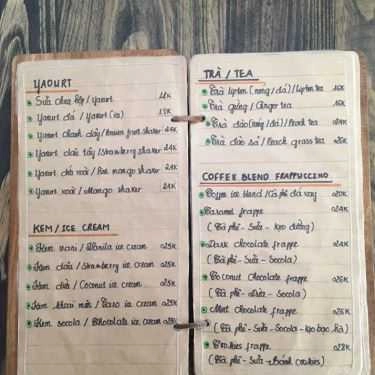 YAOURT
Sữa chua hộp / Yaourt
Yaourt đá / Yaourt (ice)
Yaourt chanh dây / Passion fruit shaker 24K
Yaourt dâu tây / Strawberry shaker 24K
Yaourt xoài / Mango shaker 24K
KEM / ICE CREAM
Kem vani / Vanilla ice cream 025K
Kem dâu / Strawberry ice cream 025K
Kem dừa / Coconut ice cream 025K
Kem socola / Chocolate ice cream 025K
TRÀ / TEA
Trà lipton (nóng / đá) / Lipton tea 16K
Trà gừng / Ginger tea 16K
Trà đào (nóng / đá) / Peach tea
Trà đào sả / Peach grass tea
COFFEE BLEND FRAPPUCCINO
Coffee ice blend / Cà phê đá xay 020K
Caramel frappe 024K
(Cà phê - Sữa - Kẹo đường)
Dark chocolate frappe 024K
(Cà phê - Sữa - Socola)
Coconut chocolate frappe 026K
(Cà phê - Dừa - Socola)
Mint chocolate frappe 026K
(Cà phê - Sữa - Socola - Kẹo bạc hà)
Cookies frappe 028K
(Cà phê - Sữa - Bánh cookies)